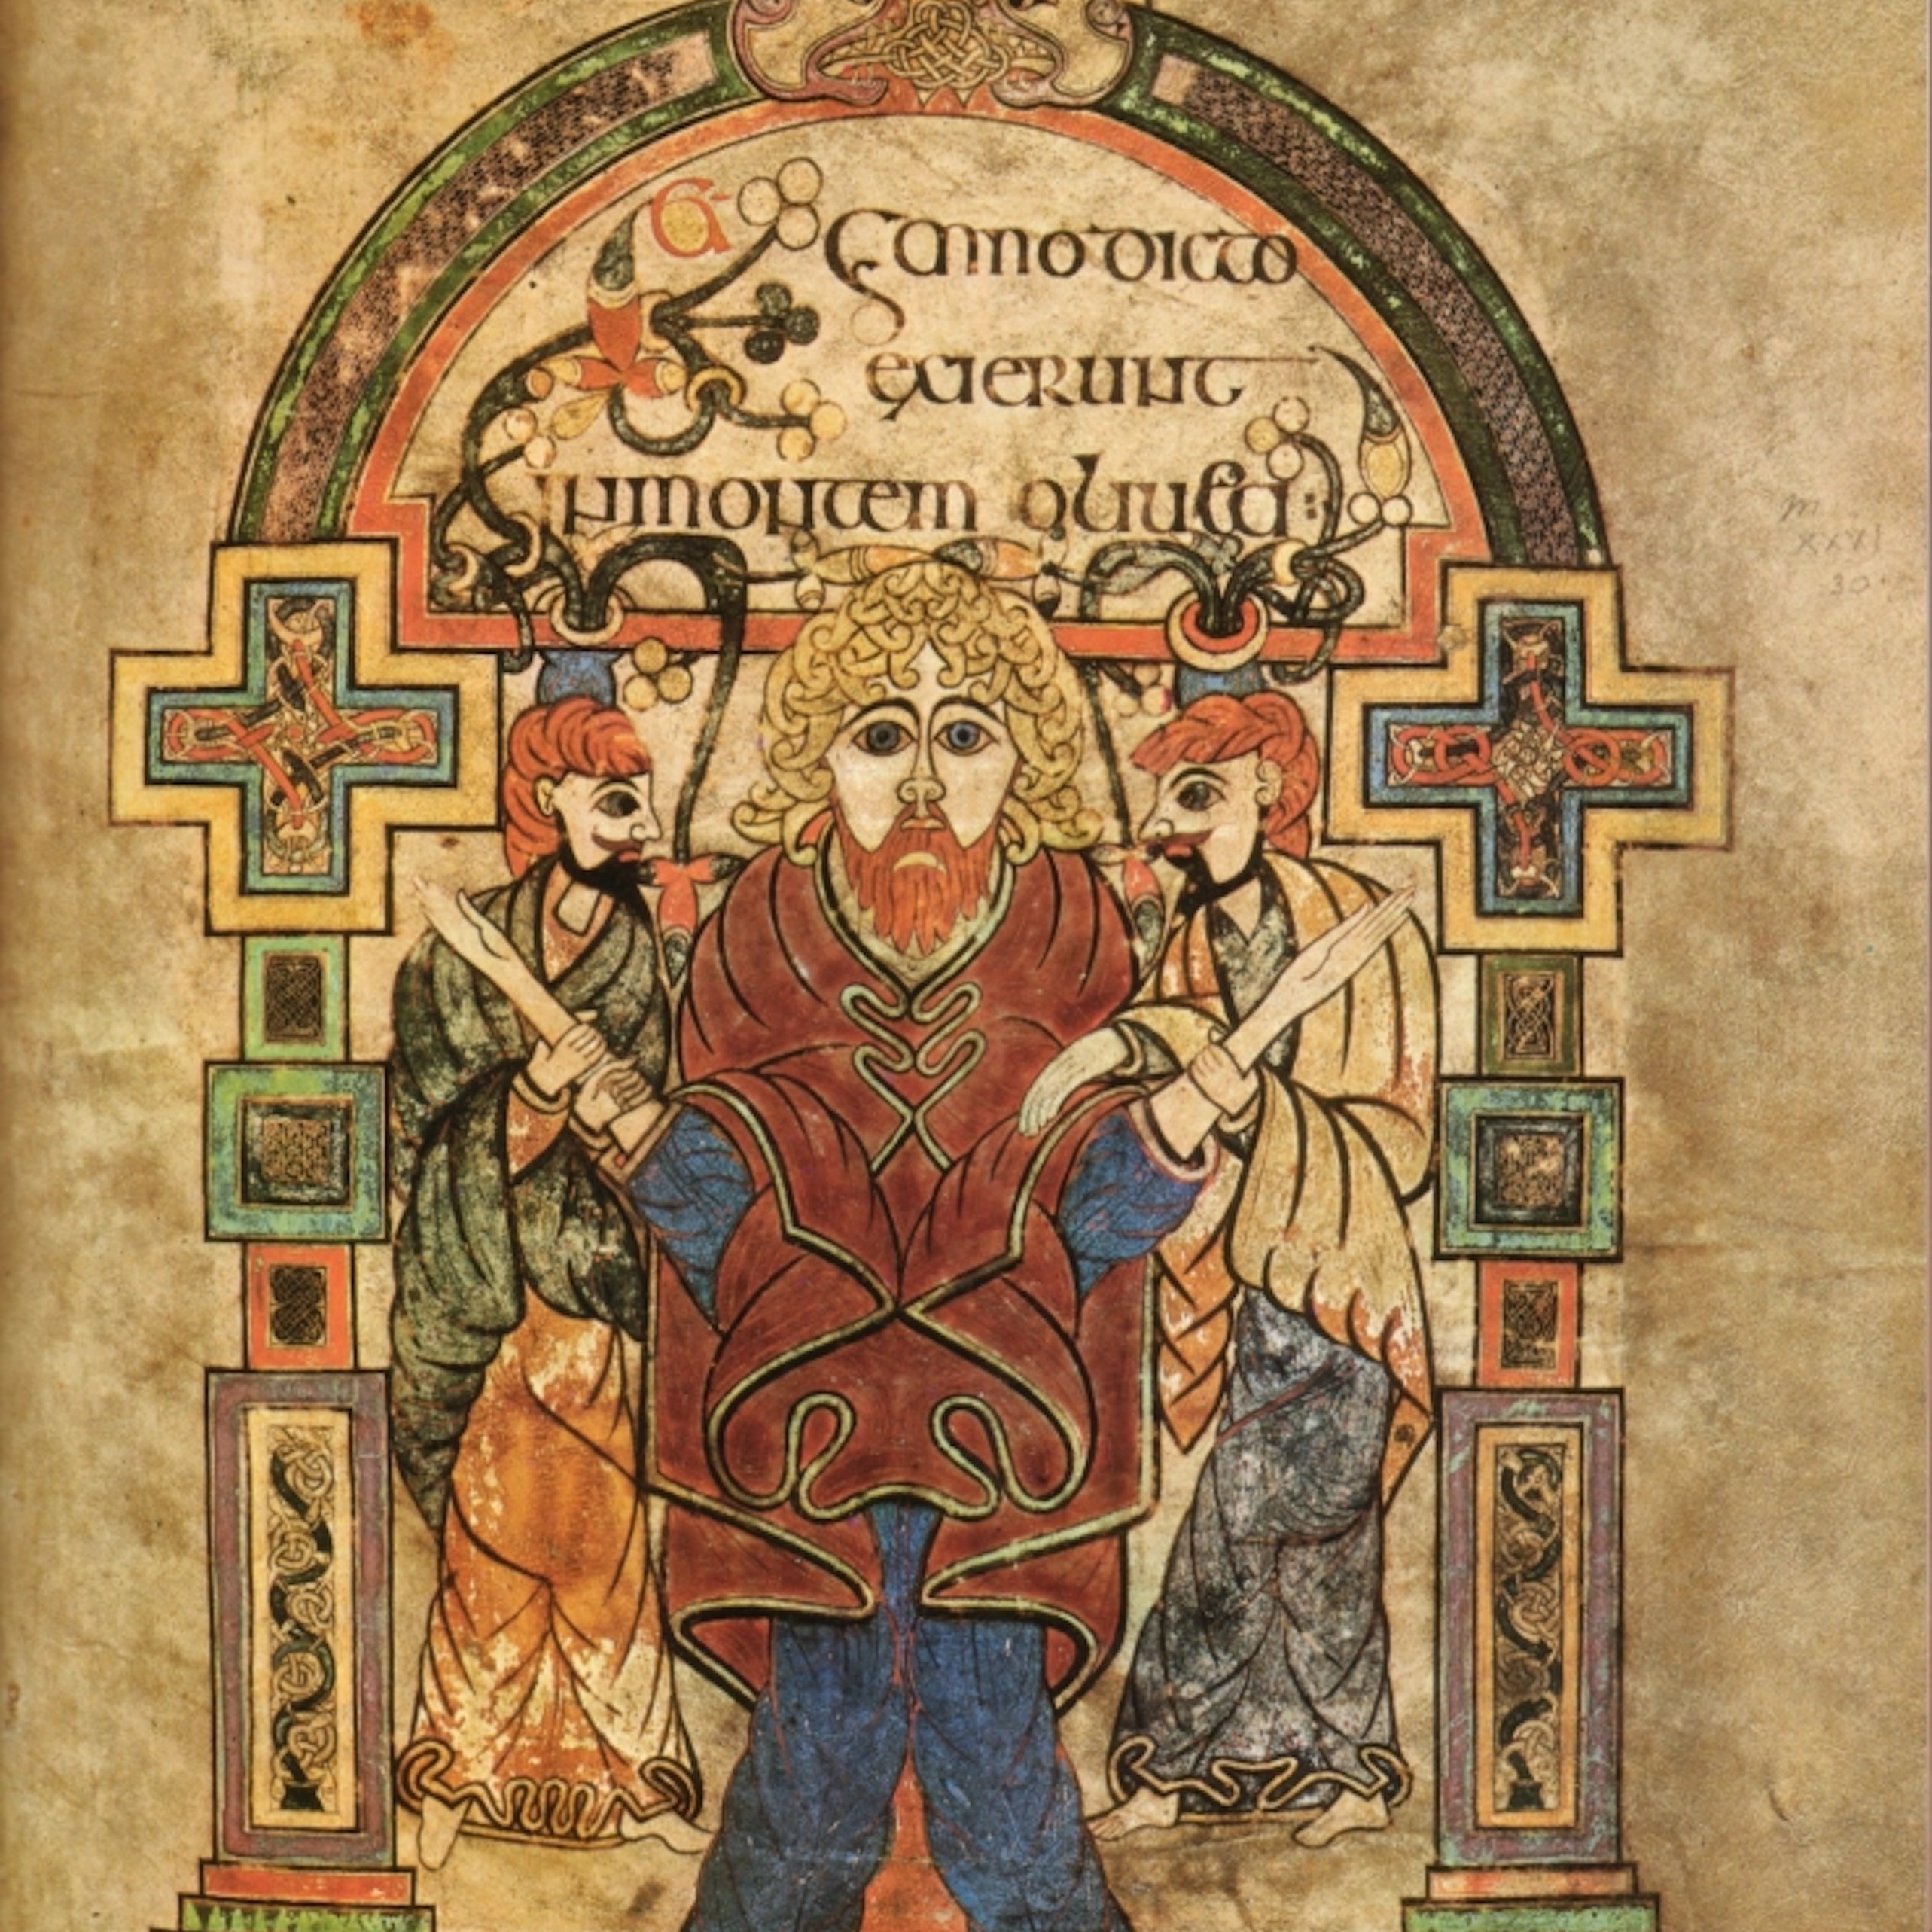 Et ymno dicto
exierunt
in montem oliueti
m
xxvi
30